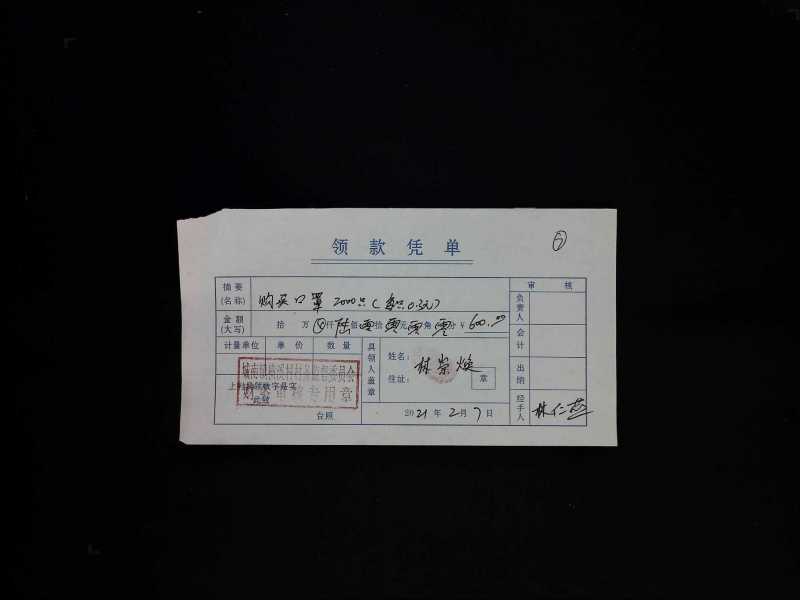 领款凭单
⑦
摘要
(名称)
购买口罩 2000只(每只0.3元)
审核
负责人
金额
(大写)
拾万⊗仟陆佰零拾零元零角零分 ¥600.00
会计
计量单位 单价 数量
具领人盖章
姓名:
林崇焕
住址:
章
出纳
村务监督委员会
财务审核专用章
上列款领数字是实
此致
台照
2021年2月7日
经手人
林仁燕